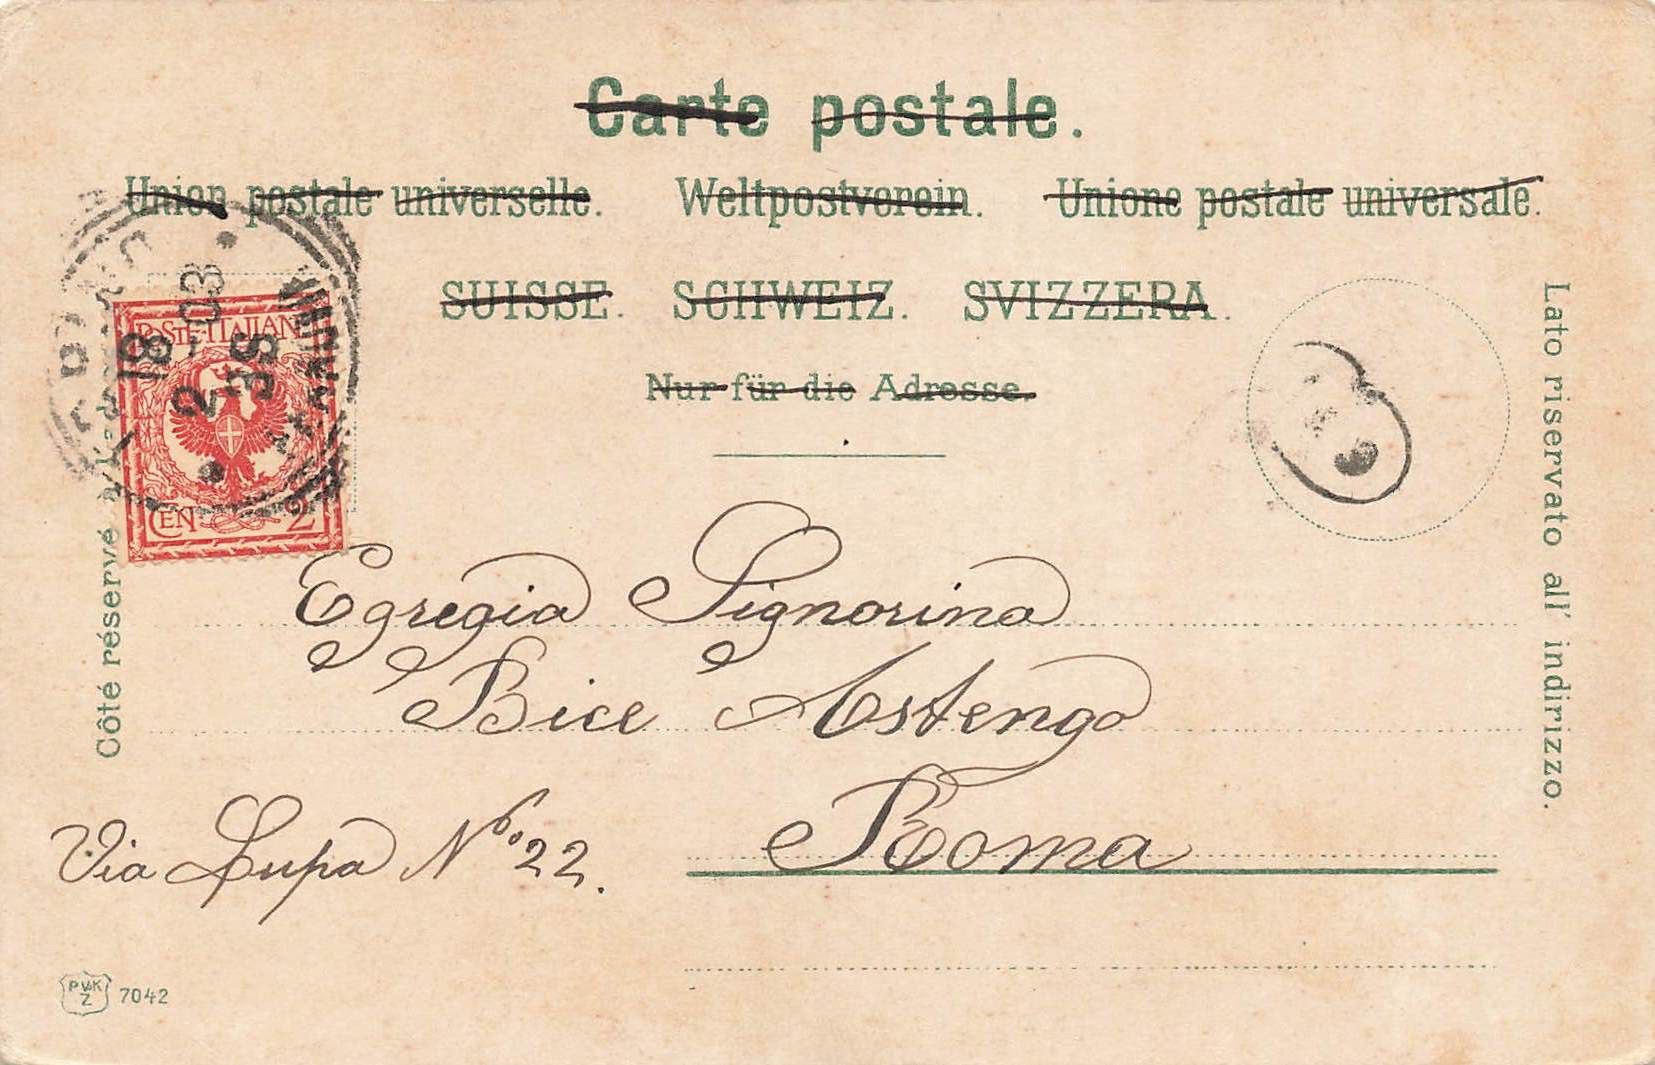 Carte postale.
Union postale universelle. Weltpostverein. Unione postale universale.
SUISSE. SCHWEIZ. SVIZZERA.
Nur für die Adresse.
POSTE ITALIANE
CEN 2
18
2-03
3S
Côté réservé à l'adresse
Lato riservato all' indirizzo.
Egregia Signorina
Bice Astengo
Roma
Via Lupa No. 22.
PVK
Z
7042